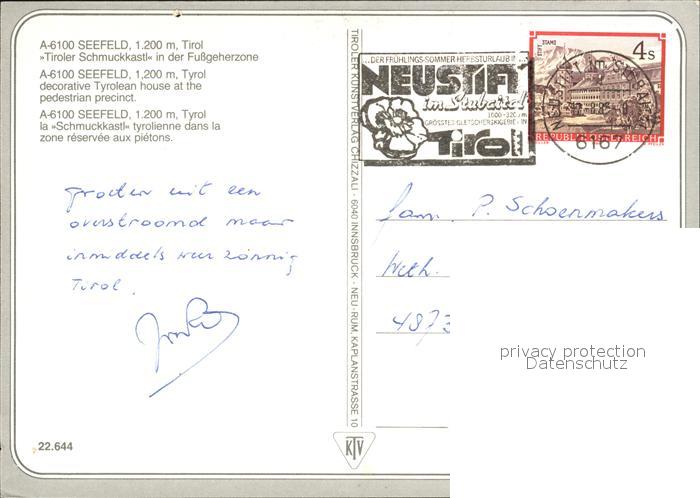 A-6100 SEEFELD, 1.200 m, Tirol
»Tiroler Schmuckkastl« in der Fußgeherzone
A-6100 SEEFELD, 1,200 m, Tyrol
decorative Tyrolean house at the
pedestrian precinct.
A-6100 SEEFELD, 1.200 m, Tyrol
la »Schmuckkastl« tyrolienne dans la
zone réservée aux piétons.
groeten uit een
overstroomd maar
inmiddels weer zonnig
Tirol.
22.644
TIROLER KUNSTVERLAG CHIZZALI · 6040 INNSBRUCK - NEU-RUM, KAPLANSTRASSE 10
KTV
...DER FRÜHLINGS-SOMMER HERBSTURLAUB IN...
NEUSTIFT
im Stubaital
1000-3200m
GRÖSSTES GLETSCHERSKIGEBIET IN
Tirol
STIFT STAMS
4 S
REPUBLIK ÖSTERREICH
6167
fam. P. Schoenmakers
Weth.
4873
privacy protection
Datenschutz